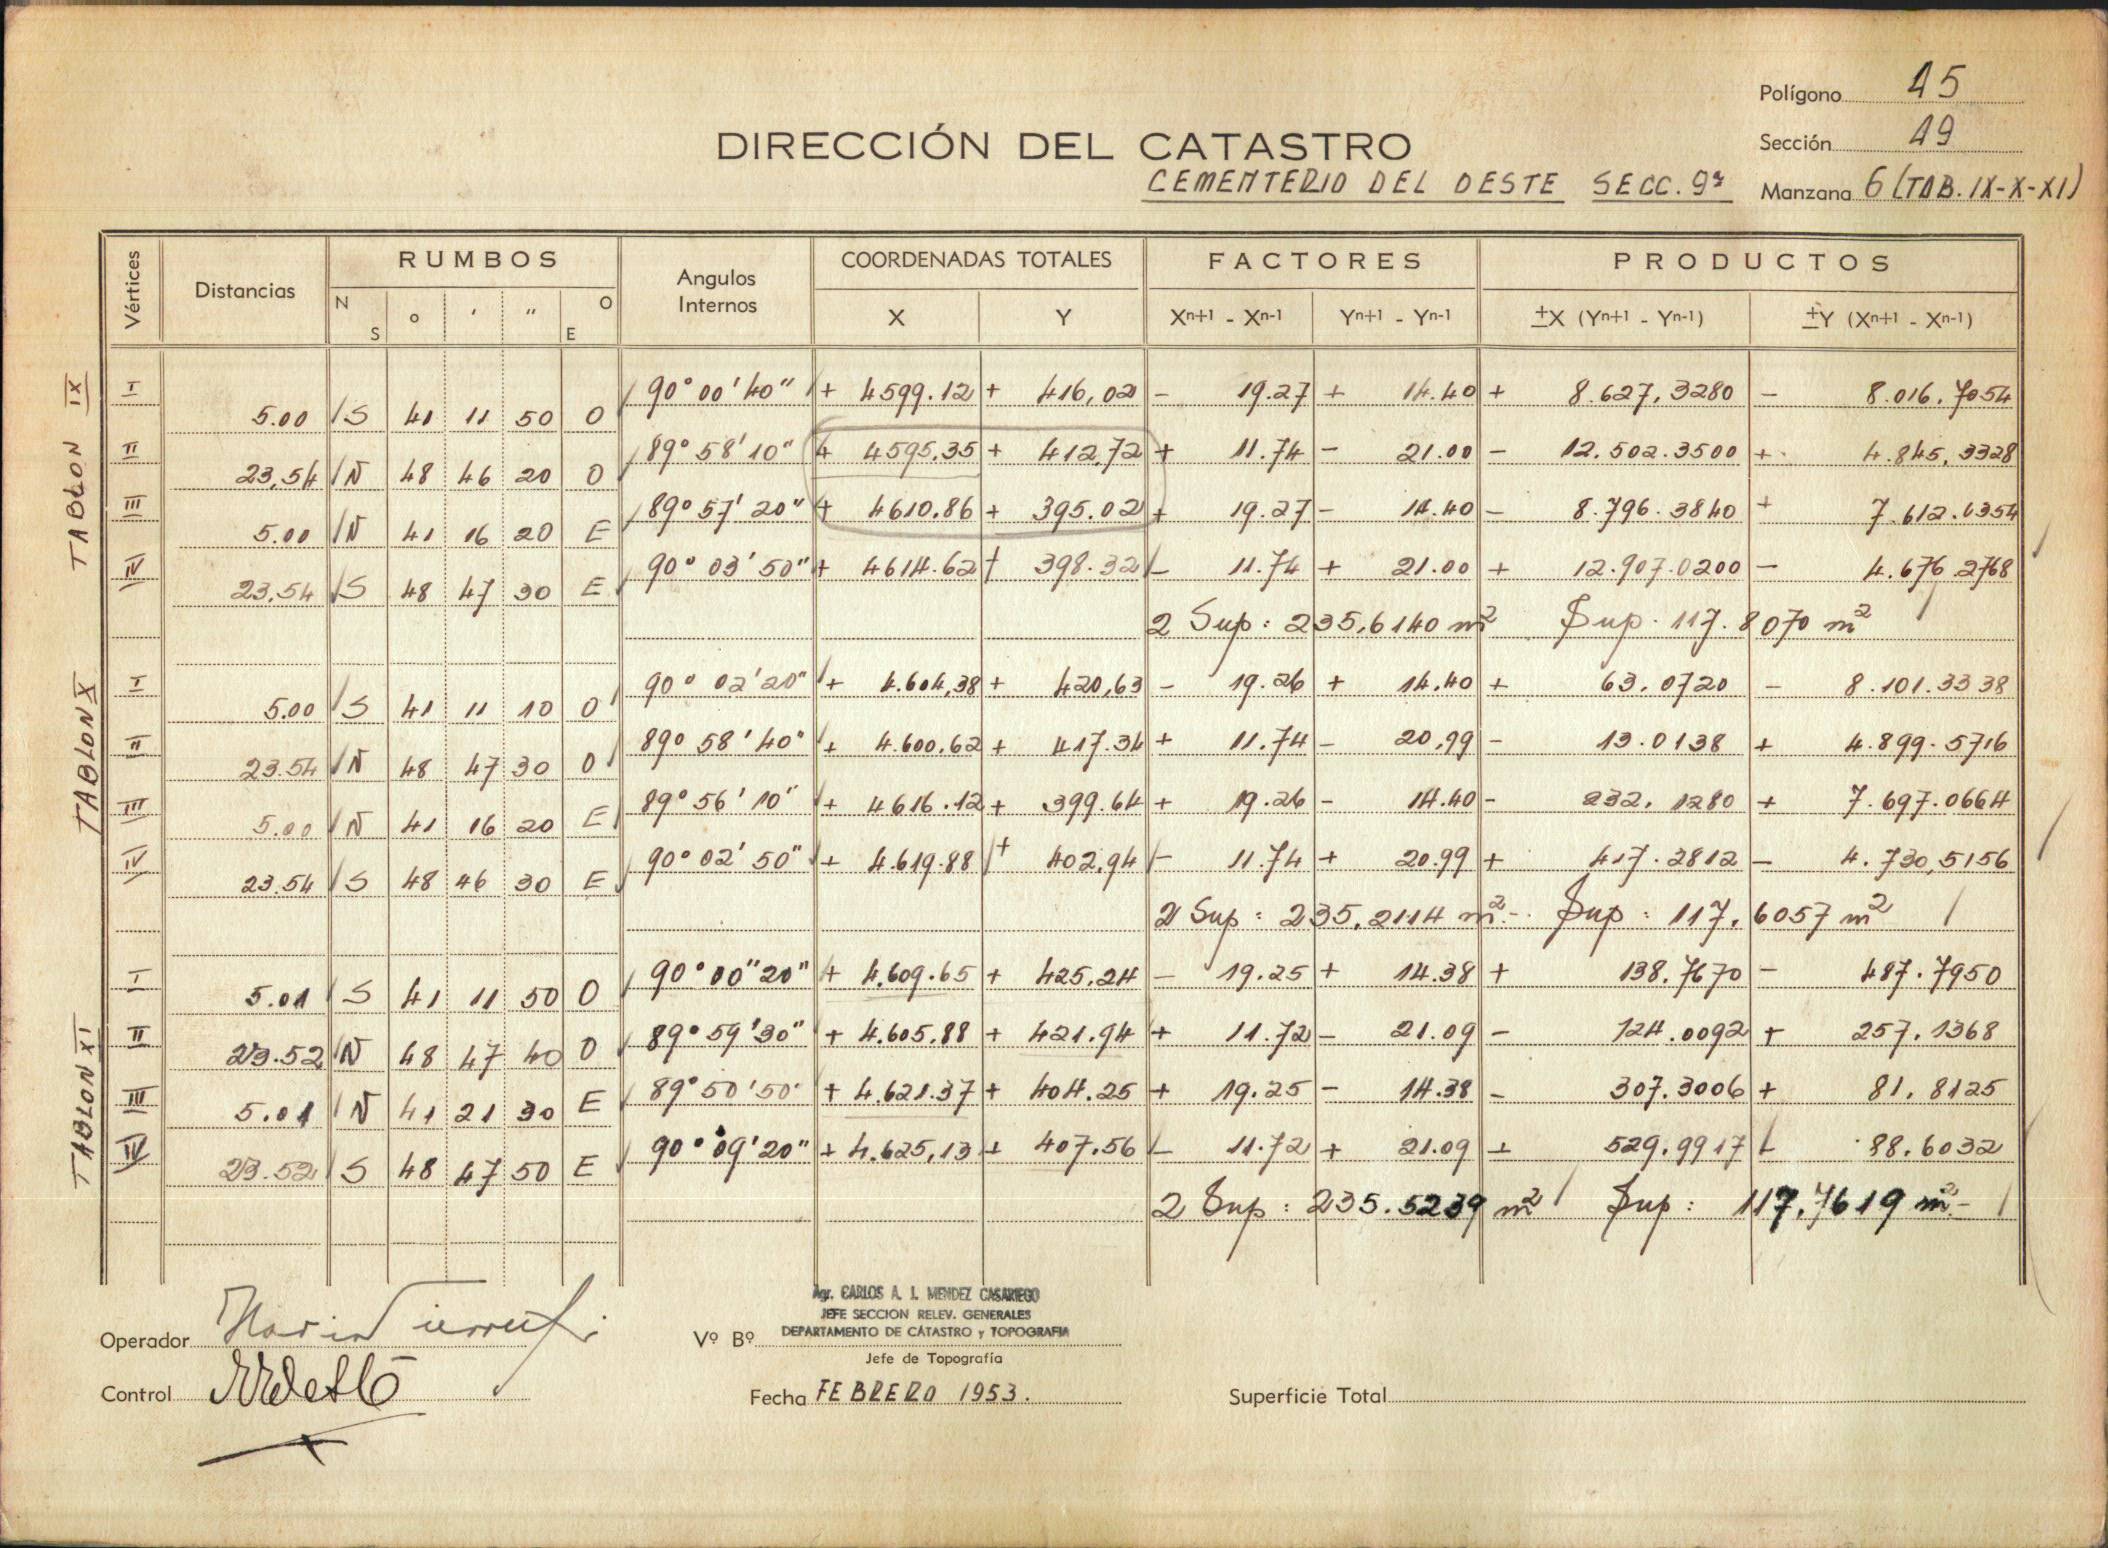 Polígono 45
Sección 19
DIRECCIÓN DEL CATASTRO
CEMENTERIO DEL OESTE SECC. 9ª
Manzana 6 (TAB. IX-X-XI)
Vértices Distancias RUMBOS Angulos Internos COORDENADAS TOTALES FACTORES PRODUCTOS
N S ° ' " O E X Y Xⁿ⁺¹ - Xⁿ⁻¹ Yⁿ⁺¹ - Yⁿ⁻¹ ±X (Yⁿ⁺¹ - Yⁿ⁻¹) ±Y (Xⁿ⁺¹ - Xⁿ⁻¹)
TABLON IX
I 90° 00' 40" + 4599.12 + 416,02 - 19.27 + 14.40 + 8.627,3280 - 8.016,7054
5.00 S 41 11 50 O
II 89° 58' 10" + 4595,35 + 412,72 + 11.74 - 21.00 - 12.502.3500 + 4.845,3328
23,54 N 48 46 20 O
III 89° 57' 20" + 4610.86 + 395.02 + 19.27 - 14.40 - 8.796.3840 + 7.612.0354
5.00 N 41 16 20 E
IV 90° 03' 50" + 4614.62 + 398.32 - 11.74 + 21.00 + 12.907.0200 - 4.676.2768
23,54 S 48 47 30 E
2 Sup: 235,6140 m² Sup. 117.8070 m²
TABLON X
I 90° 02' 20" + 4.604,38 + 420,63 - 19.26 + 14.40 + 63.0720 - 8.101.3338
5.00 S 41 11 10 O
II 89° 58' 40" + 4.600,62 + 417.34 + 11.74 - 20,99 - 13.0138 + 4.899.5716
23.54 N 48 47 30 O
III 89° 56' 10" + 4616.12 + 399.64 + 19.26 - 14.40 - 232.1280 + 7.697.0664
5.00 N 41 16 20 E
IV 90° 02' 50" + 4.619.88 + 402,94 - 11.74 + 20.99 + 417.2812 - 4.730,5156
23.54 S 48 46 30 E
2 Sup: 235.2114 m².- Sup: 117.6057 m²
TABLON XI
I 90° 00" 20" + 4.609.65 + 425,24 - 19.25 + 14.38 + 138.7670 - 487.7950
5.01 S 41 11 50 O
II 89° 59' 30" + 4.605.88 + 421.94 + 11.72 - 21.09 - 124.0092 + 257.1368
23.52 N 48 47 40 O
III 89° 50' 50" + 4.621.37 + 404.25 + 19.25 - 14.38 - 307.3006 + 81.8125
5.01 N 41 21 30 E
IV 90° 09' 20" + 4.625,13 + 407.56 - 11.72 + 21.09 + 529.9917 - 88.6032
23.52 S 48 47 50 E
2 Sup: 235.5239 m² Sup: 117.7619 m².-
Agr. CARLOS A. I. MENDEZ CASARIEGO
JEFE SECCION RELEV. GENERALES
DEPARTAMENTO DE CATASTRO y TOPOGRAFIA
Operador
Vº Bº
Jefe de Topografía
Control
Fecha FEBRERO 1953.
Superficie Total